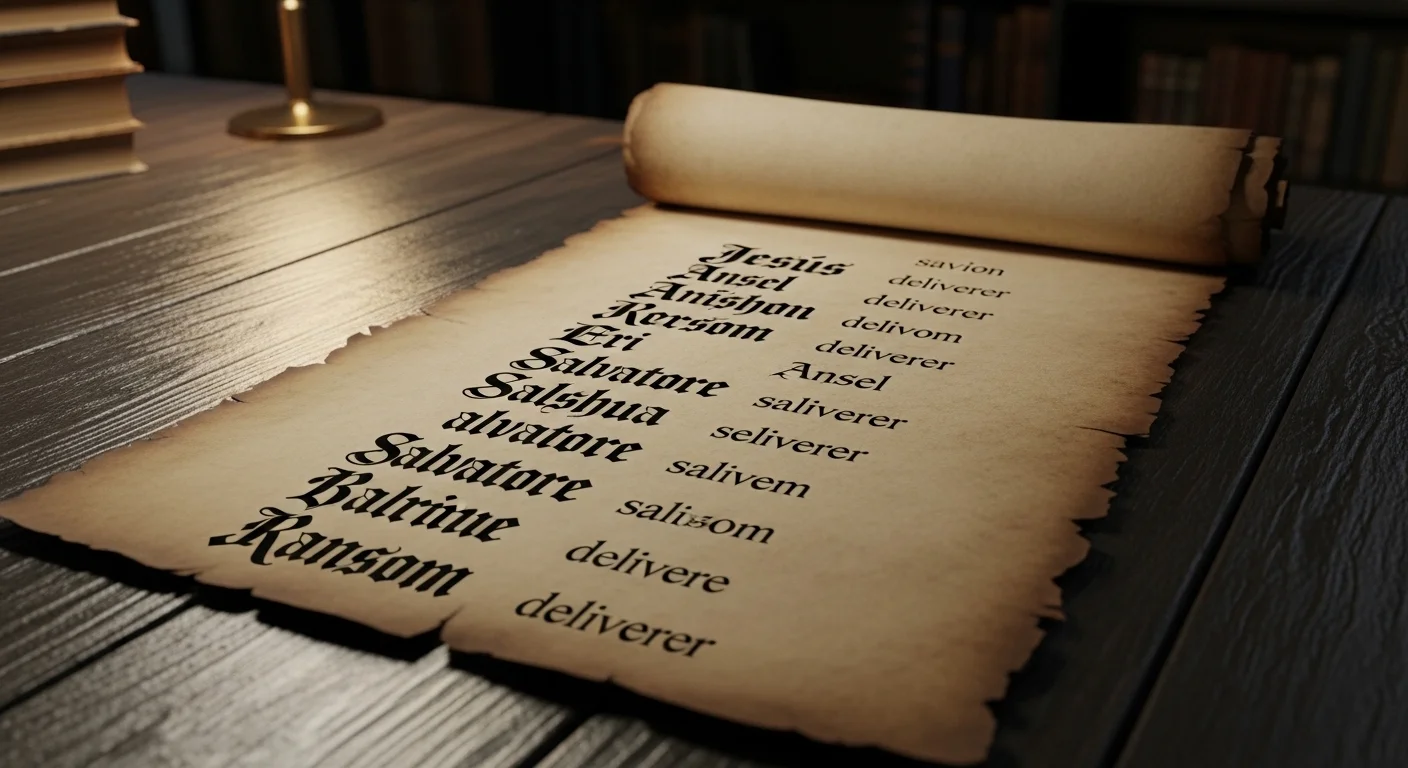 Jesús
Ansel
Anishon
Kersom
Eri
Salvatore
Salshua
alvatore
Salvatore
Ransom
savion
deliverer
deliverer
delivom
deliverer
Ansel
saliverer
seliverer
salivem
salisom
delivere
deliverer